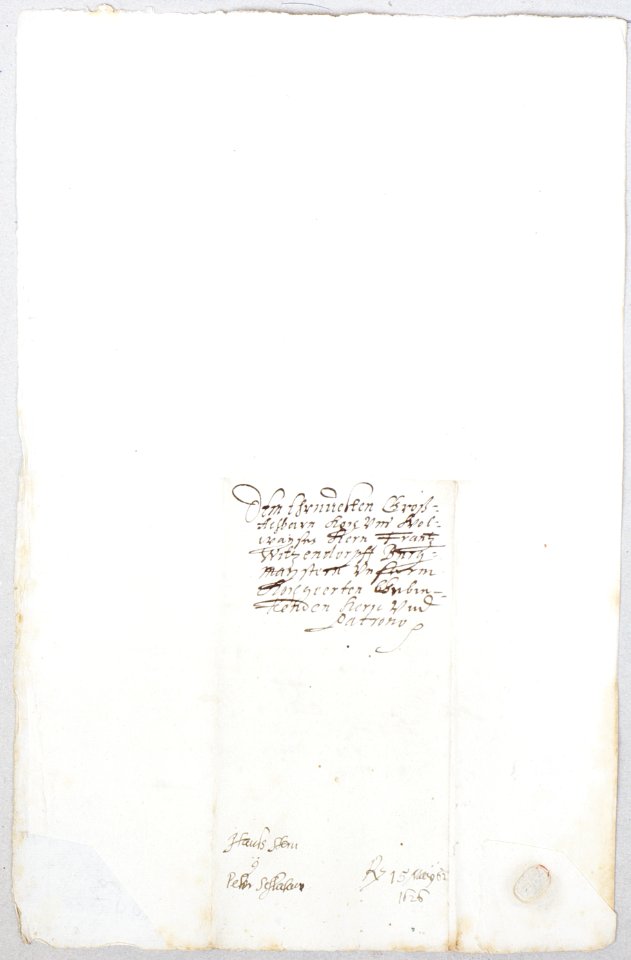 Dem Ehrnvesten Groß-
achtbarn Hoch Und Wol-
weisen Hern Frantz
Witzendorpff Burg-
maystern Unserm
Hochgeerten Gebie-
tenden Hern Und
Patrono
Hanß Stern
Peter
15
1626